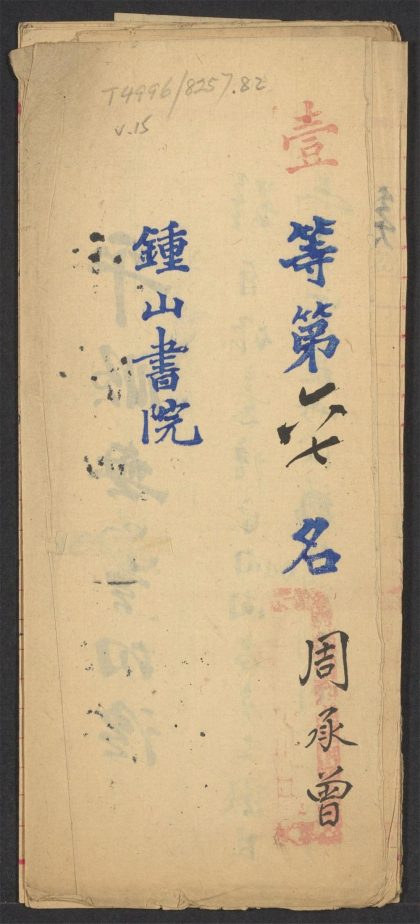 T4996/8257.82
v.15
壹等第六七名 周承曾
鍾山書院